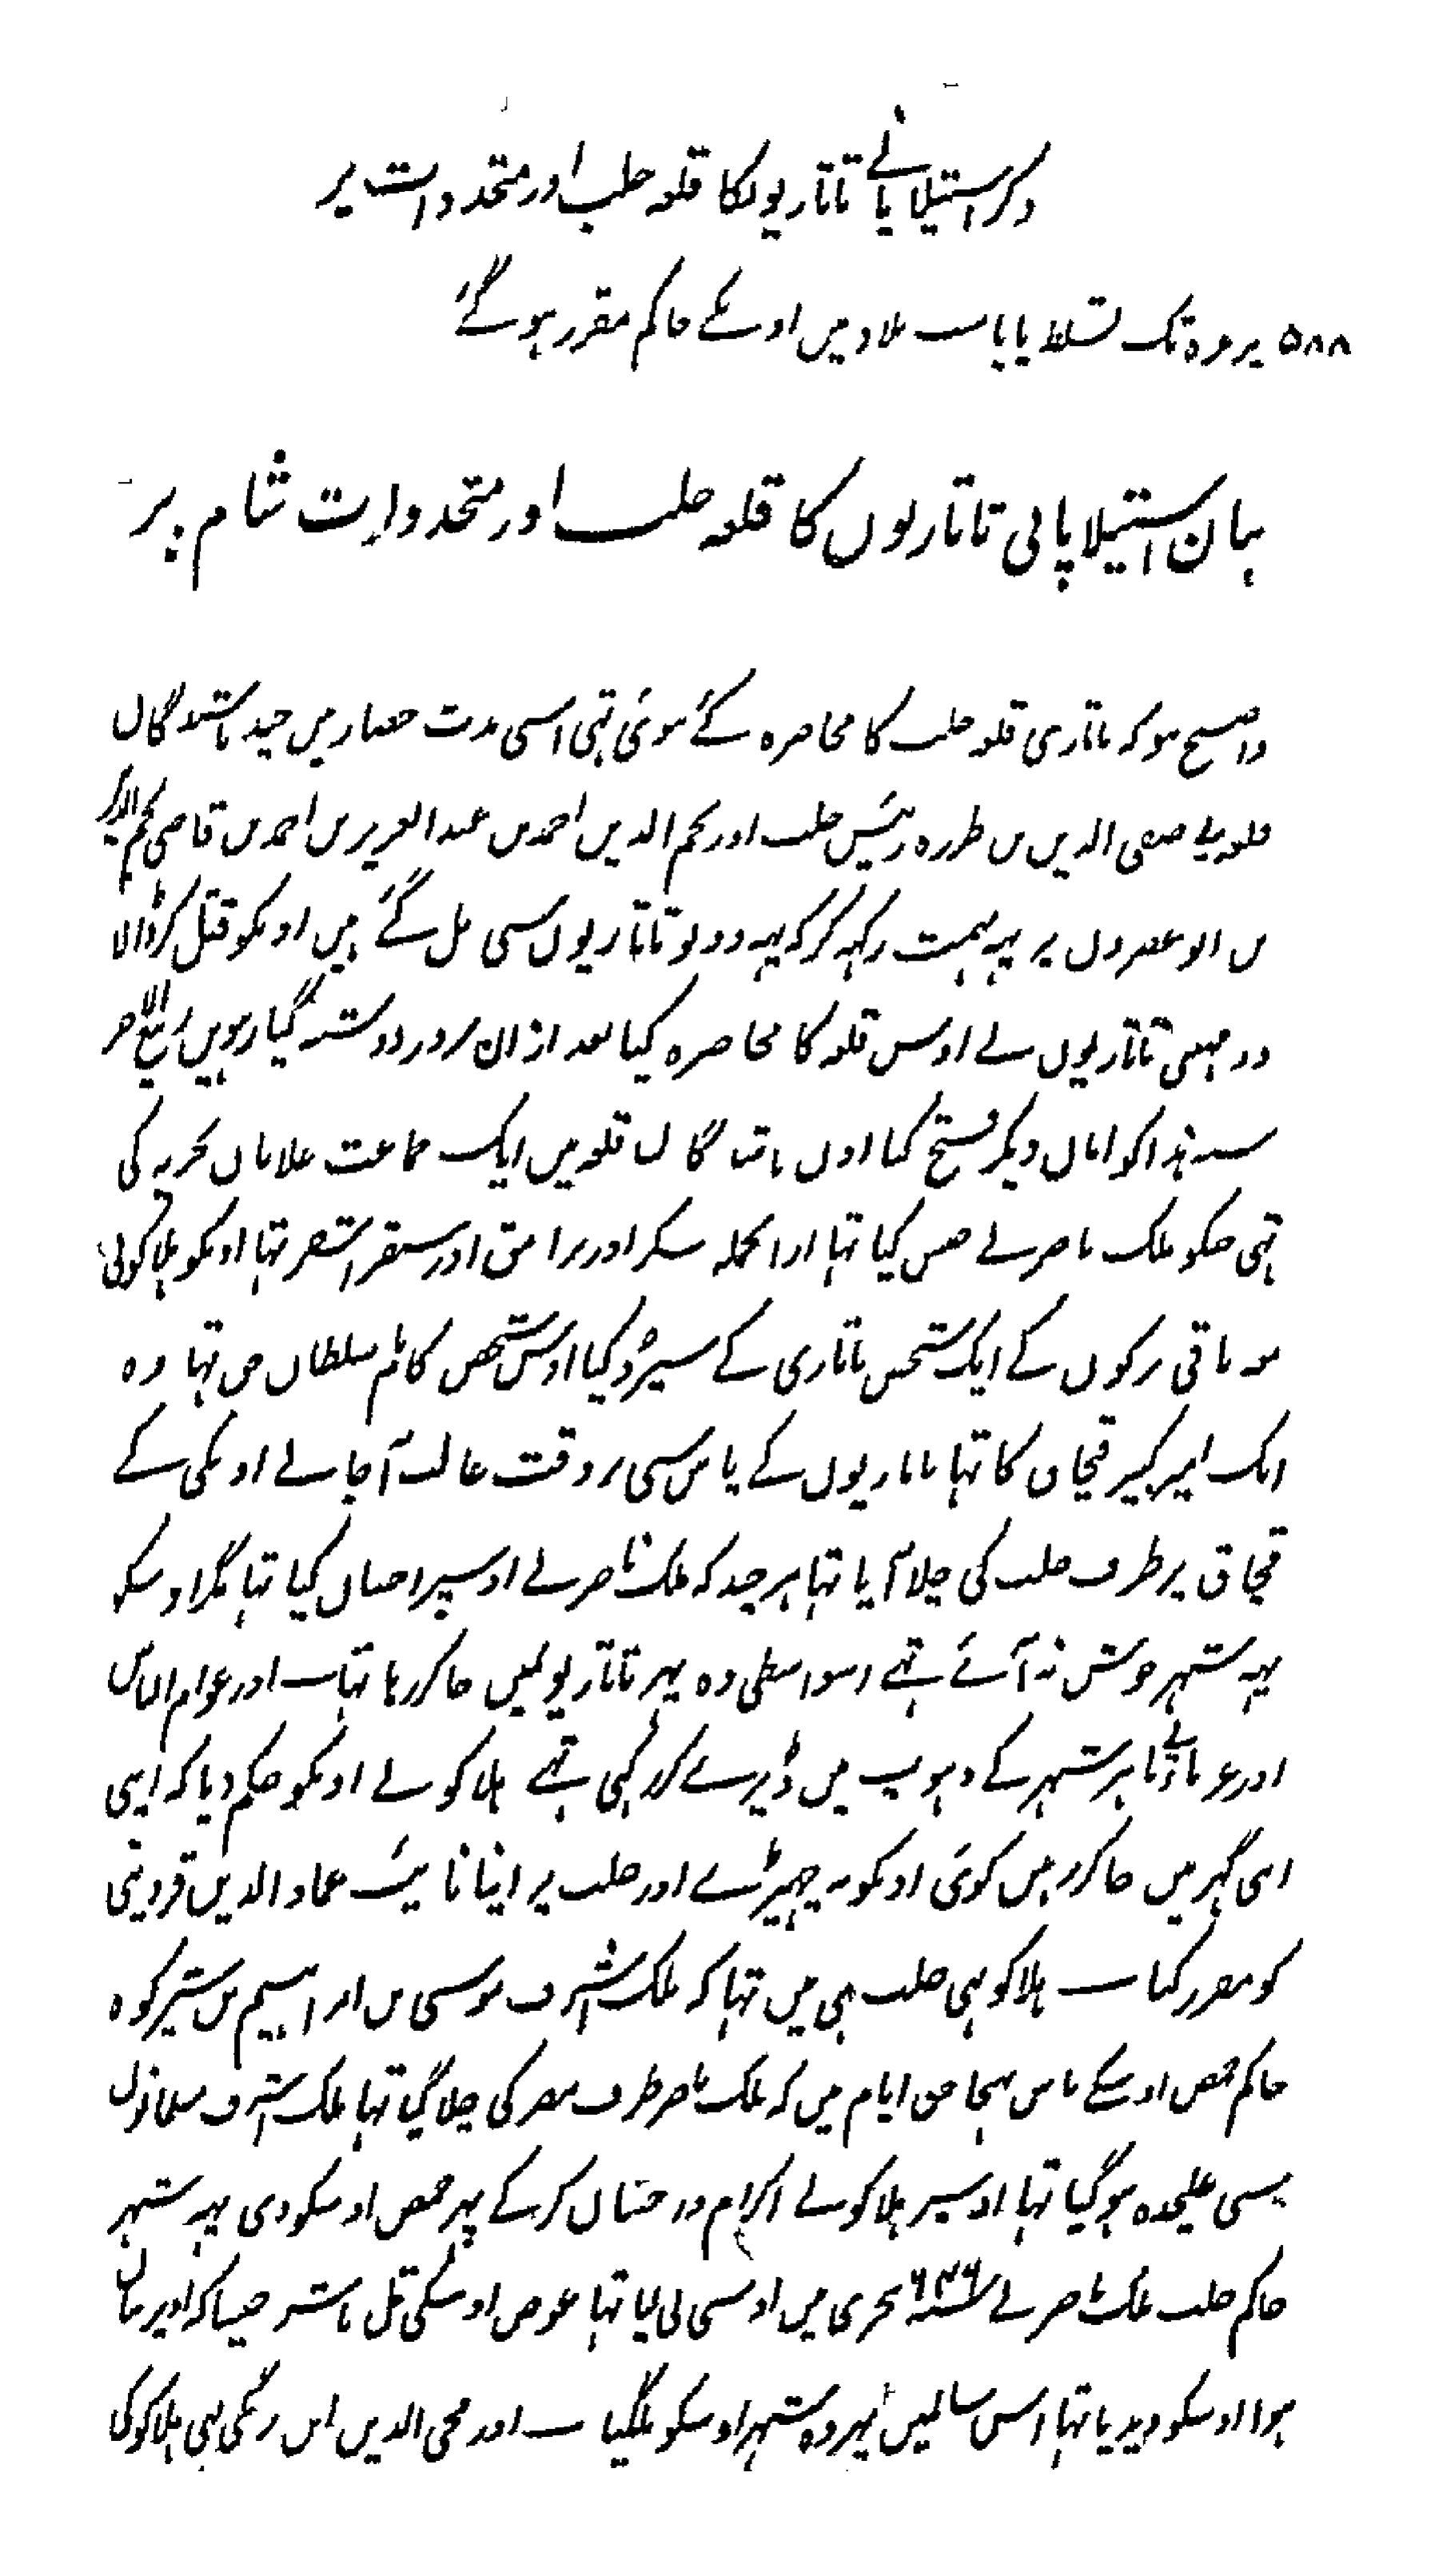 ذکر استیلا پانے تاتاریوں کا قلعہ حلب اور متجددات پر
۵۸۸ پر غزہ تک تسلط پایا بلاد میں اونکے حاکم مقرر ہوگئے
بیان استیلا پانی تاتاریوں کا قلعہ حلب اور متجددات شام پر
واضح ہو کہ تاتاری قلعہ حلب کا محاصرہ کئے ہوئی تہی اسی مدت حصار میں چند باشندگان
قلعہ نے صفی الدین بن طرزہ رئیس حلب اور نجم الدین احمد بن عبد العزیز بن احمد بن قاضی نجم الدین
بن ابو عصرون پر یہہ تہمت رکہہ کر کہ یہہ دونو تاتاریوں سی مل گئے ہیں اونکو قتل کر ڈالا
دو مہینی تاتاریوں نے اوس قلعہ کا محاصرہ کیا بعد ازان بروز دوشنبہ گیارہویں ربیع الآخر
سنہ ہذا کو امان دیکر فتح کیا اون باشندگان قلعہ میں ایک جماعت غلامان بحریہ کی
تہی جنکو ملک ناصر نے حبس کیا تہا ازانجملہ سکز اور برامق اور سنقر اشقر تہا اونکو ہلاکو نی
معہ باقی ترکوں کے ایک شخص تاتاری کے سپرد کیا اوس شخص کا نام سلطان جق تہا وہ
ایک امیر کبیر قبچاق کا تہا تاتاریوں کے پاس سی بروقت غالب آجانے اونکی کے
قبچاق پر طرف حلب کی چلا آیا تہا ہر چند کہ ملک ناصر نے اوسپر احسان کیا تہا مگر اوسکو
یہہ شہر خوش نہ آئے تہے اسواسطی وہ پہر تاتاریونمیں جا کر رہا تہا اور عوام الناس
اور غرباؤنے باہر شہر کے دہوپ میں ڈیرے کر رکہی تہے ہلاکو نے اونکو حکم دیا کہ اپنی
اپنی گہر میں جا کر رہیں کوئی اونکو نہ چہیڑے اور حلب پر اپنا نائب عماد الدین قزوینی
کو مقرر کیا ہلاکو بہی حلب ہی میں تہا کہ ملک اشرف موسی بن ابراہیم بن شیرکوہ
حاکم حمص اوسکے پاس پہنچا جن ایام میں کہ ملک ناصر طرف مصر کی چلا گیا تہا ملک اشرف مسلمانوں
سی علیحدہ ہو گیا تہا اوسپر ہلاکو نے اکرام و احسان کر کے پہر حمص اوسکو دی یہہ شہر
حاکم حلب ملک ناصر نے سنہ ۶۴۶ ہجری میں اوسسی لی لیا تہا عوض اوسکی تل باشر جیسا کہ اوپر بیان
ہوا اوسکو دیدیا تہا اس سالمیں پہر وہ شہر اوسکو ملگیا اور محی الدین ابن زکی بہی ہلاکو کی